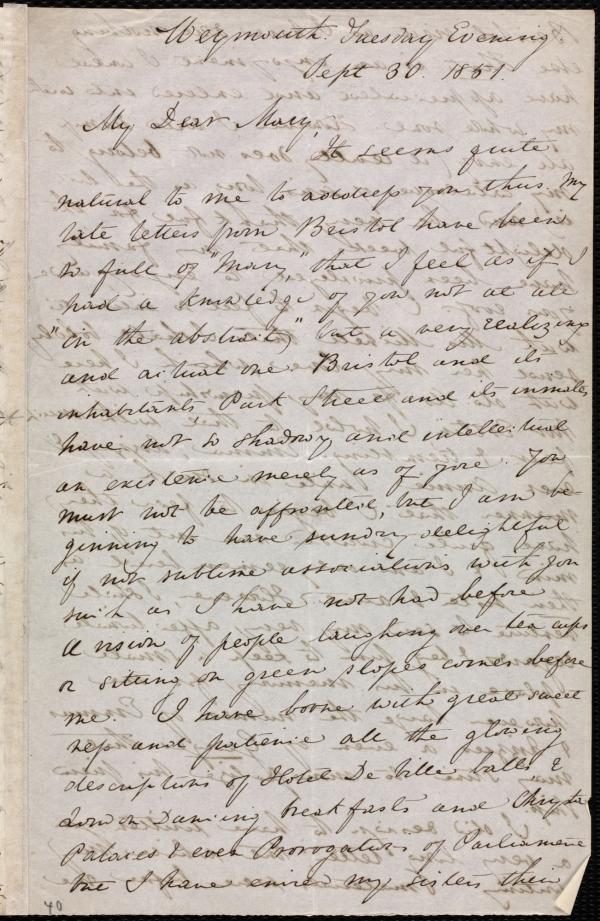 Weymouth. Tuesday Evening.
Sept 30. 1851.
My Dear Mary,
It seems quite
natural to me to address you thus. My
late letters from Bristol have been
so full of "Mary," that I feel as if I
had a knowledge of you not at all
"in the abstract," but a very realizing
and actual one. Bristol and its
inhabitants, Park Street and its inmates
have not so shadowy and intellectual
an existence merely as of yore. You
must not be affronted, but I am be-
ginning to have sundry delightful
if not sublime associations with you
such as I have not had before
A vision of people laughing over tea cups
or sitting on green slopes comes before
me. I have borne with great sweet
ness and patience all the glowing
descriptions of Hotel De Ville balls &
London Dancing breakfasts and Chrystal
Palaces & even Prorogations of Parliament
but I have envied my sisters their
40